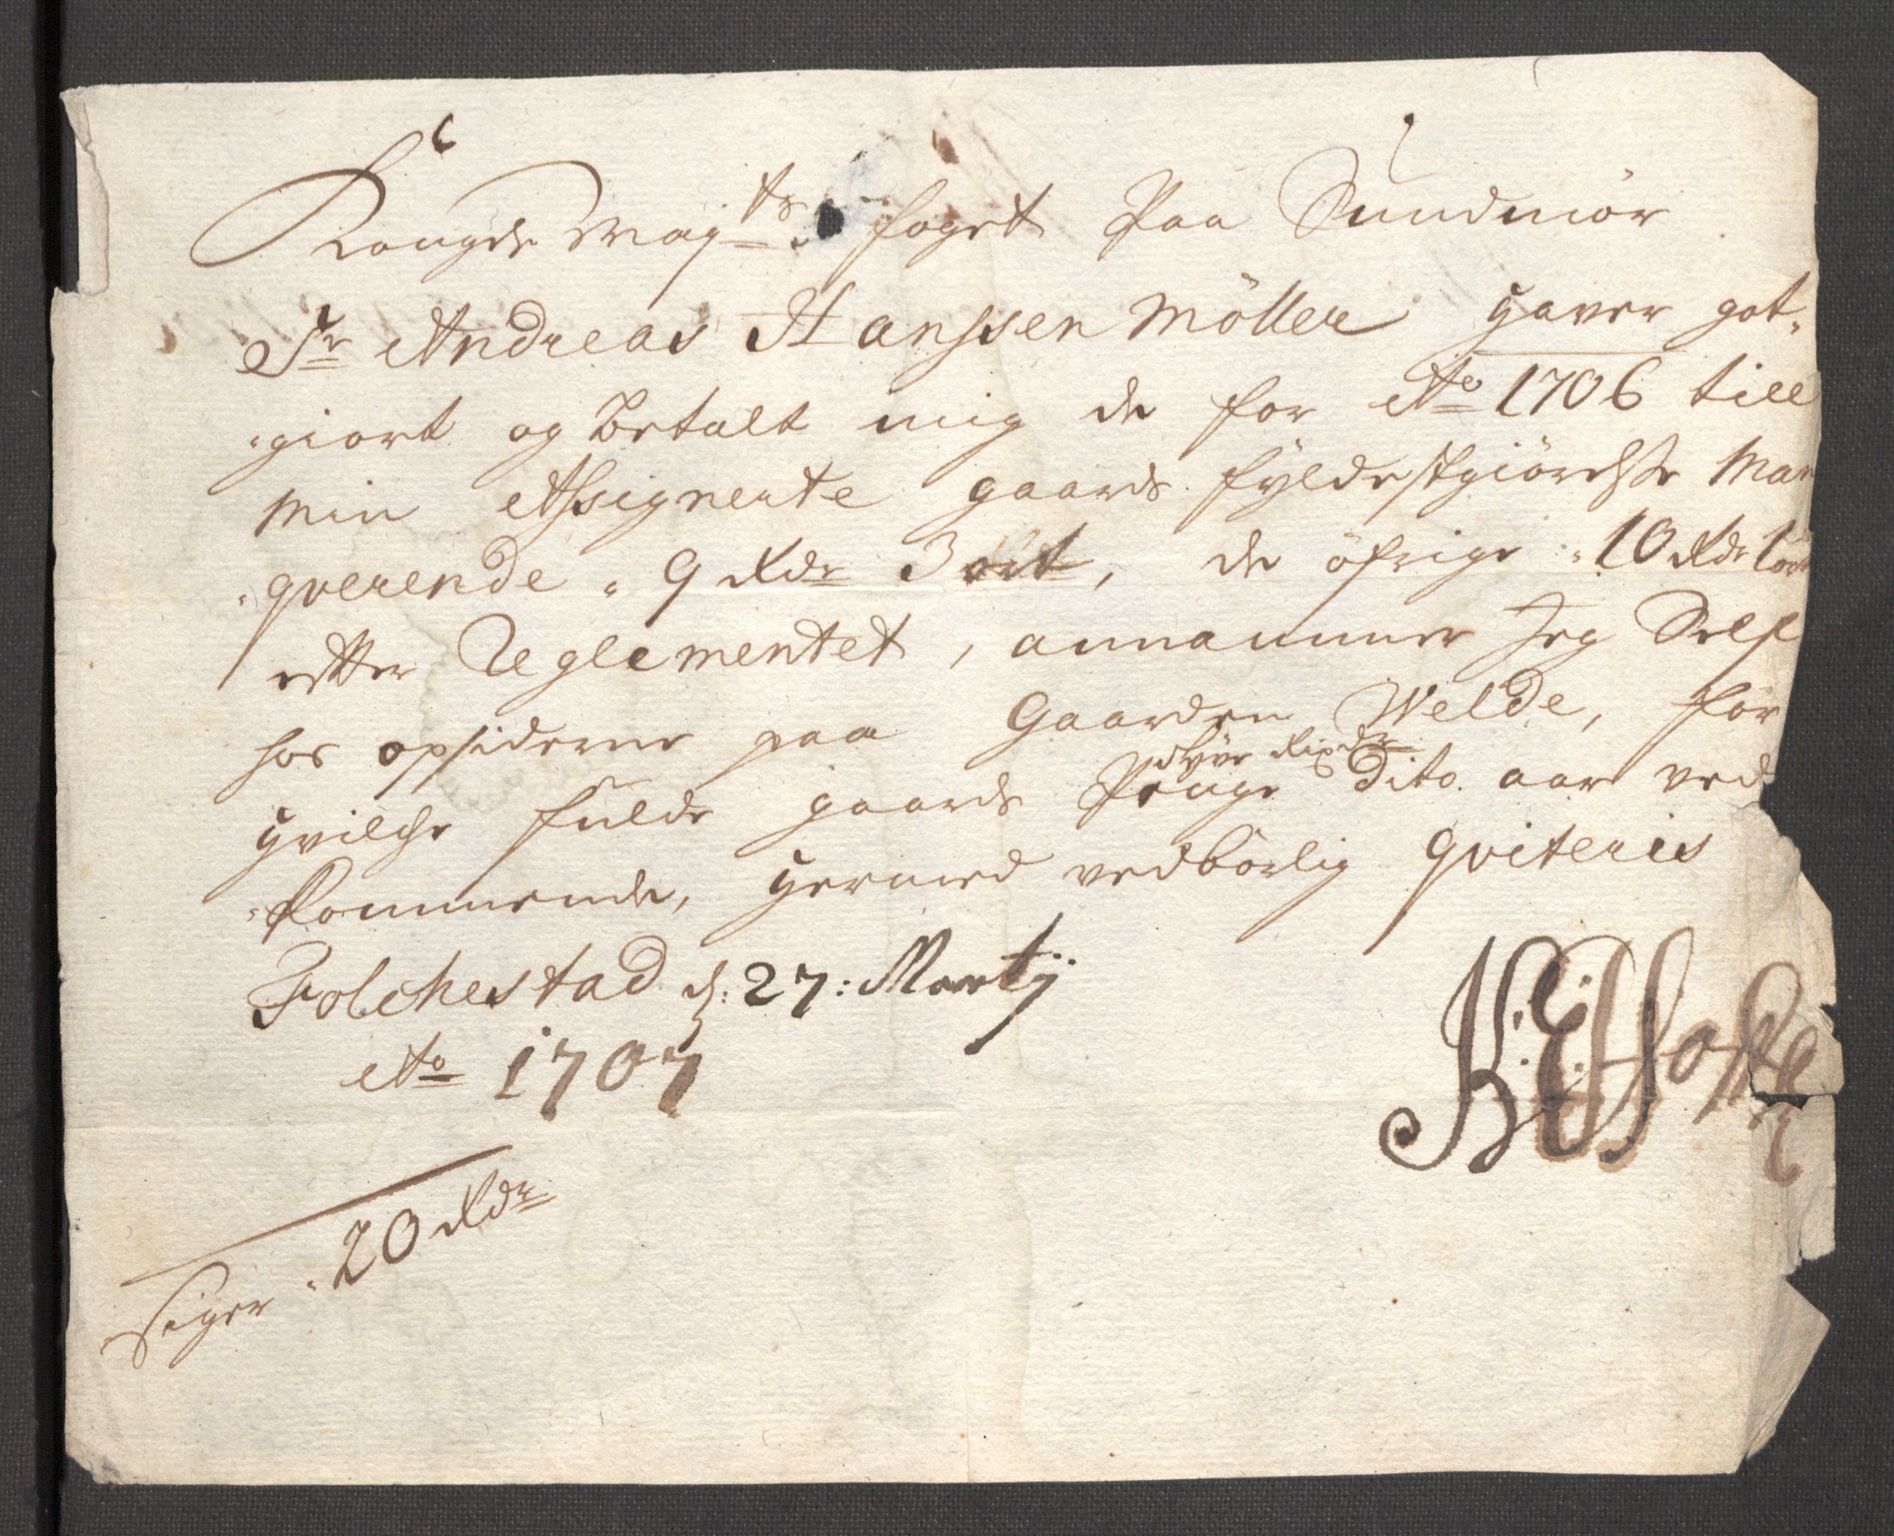 Kongde Maj:ts foget Paa Sundmör
Sr Andreas Hanssen Möller haver got-
giort og betalt mig de for Ao 1706 till
min Assignerte gaards fyldestgiörelsse Man
qverende 9 Rdr 3 ort, de öfrige 10 Rdr 1 ort
efter Reglementet, annammer Jeg Self
hos opsiderne paa Gaarden Welde, for
tyve Rixdr
hvilche fulde gaards Penge dito aar ved
kommende, hermed vedbörlig qviteris
Folchestad d: 27: Martij
Ao 1707
Siger 20 Rdr